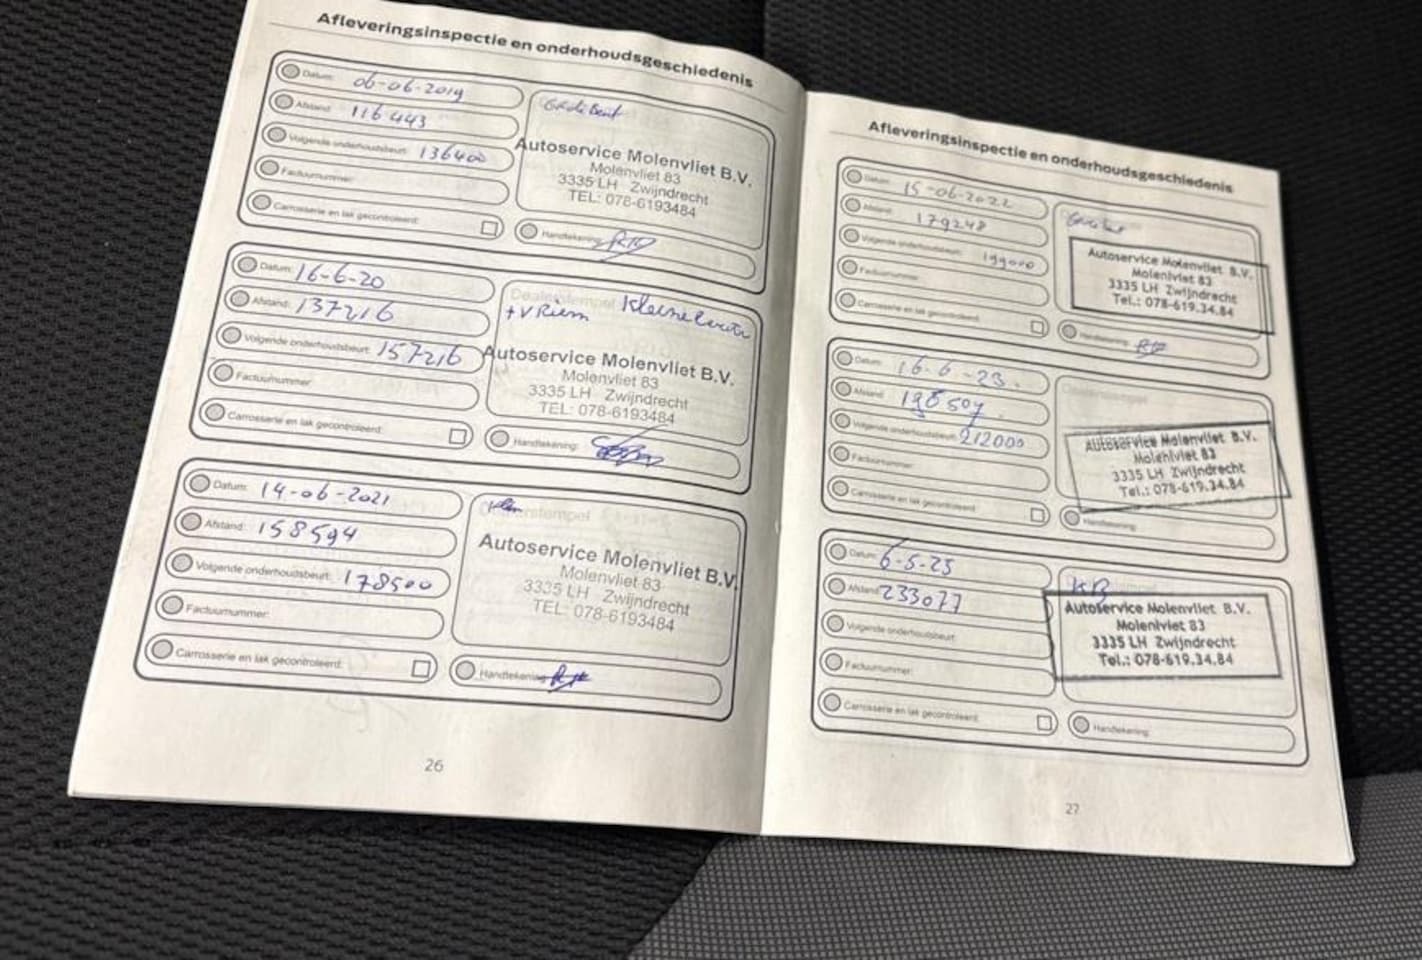 Afleveringsinspectie en onderhoudsgeschiedenis
Datum: 06-06-2019
Afstand: 116443
Volgende onderhoudsbeurt: 136400
Factuurnummer:
Carrosserie en lak gecontroleerd:
Autoservice Molenvliet B.V.
Molenvliet 83
3335 LH Zwijndrecht
TEL: 078-6193484
Handtekening:
Datum: 16-6-20
Afstand: 137216
Volgende onderhoudsbeurt: 157216
Factuurnummer:
Carrosserie en lak gecontroleerd:
Dealerstempel Kleine
+ V Riem
Autoservice Molenvliet B.V.
Molenvliet 83
3335 LH Zwijndrecht
TEL: 078-6193484
Handtekening:
Datum: 14-06-2021
Afstand: 158594
Volgende onderhoudsbeurt: 178500
Factuurnummer:
Carrosserie en lak gecontroleerd:
Dealerstempel
Autoservice Molenvliet B.V.
Molenvliet 83
3335 LH Zwijndrecht
TEL: 078-6193484
Handtekening:
26
Afleveringsinspectie en onderhoudsgeschiedenis
Datum: 15-06-2022
Afstand: 179248
Volgende onderhoudsbeurt: 199000
Factuurnummer:
Carrosserie en lak gecontroleerd:
Autoservice Molenvliet B.V.
Molenvliet 83
3335 LH Zwijndrecht
Tel.: 078-619.34.84
Handtekening:
Datum: 16-6-23.
Afstand:
Volgende onderhoudsbeurt: 212000
Factuurnummer:
Carrosserie en lak gecontroleerd:
Dealerstempel
Autoservice Molenvliet B.V.
Molenvliet 83
3335 LH Zwijndrecht
Tel.: 078-619.34.84
Handtekening:
Datum: 6-5-25
Afstand: 233077
Volgende onderhoudsbeurt:
Factuurnummer:
Carrosserie en lak gecontroleerd:
KB
Autoservice Molenvliet B.V.
Molenvliet 83
3335 LH Zwijndrecht
Tel.: 078-619.34.84
Handtekening:
27